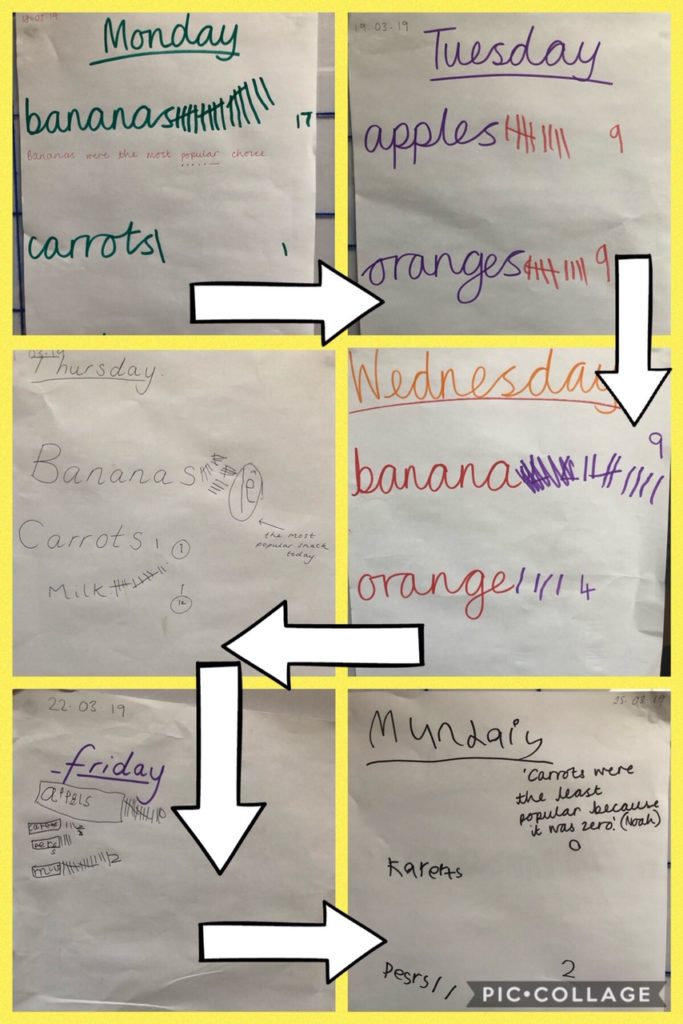 19.03.19
Monday
bananas 17
Bananas were the most popular choice
carrots 1
19.03.19
Tuesday
apples 9
oranges 9
Wednesday
9
banana
orange 4
03.19
Thursday.
Bananas
the most
popular snack
today
Carrots 1
Milk
22.03.19
friday
appls
Mundaiy
'Carrots were
the least
popular because
it was zero.' (Noah)
0
karets
2
Pesrs
PIC•COLLAGE